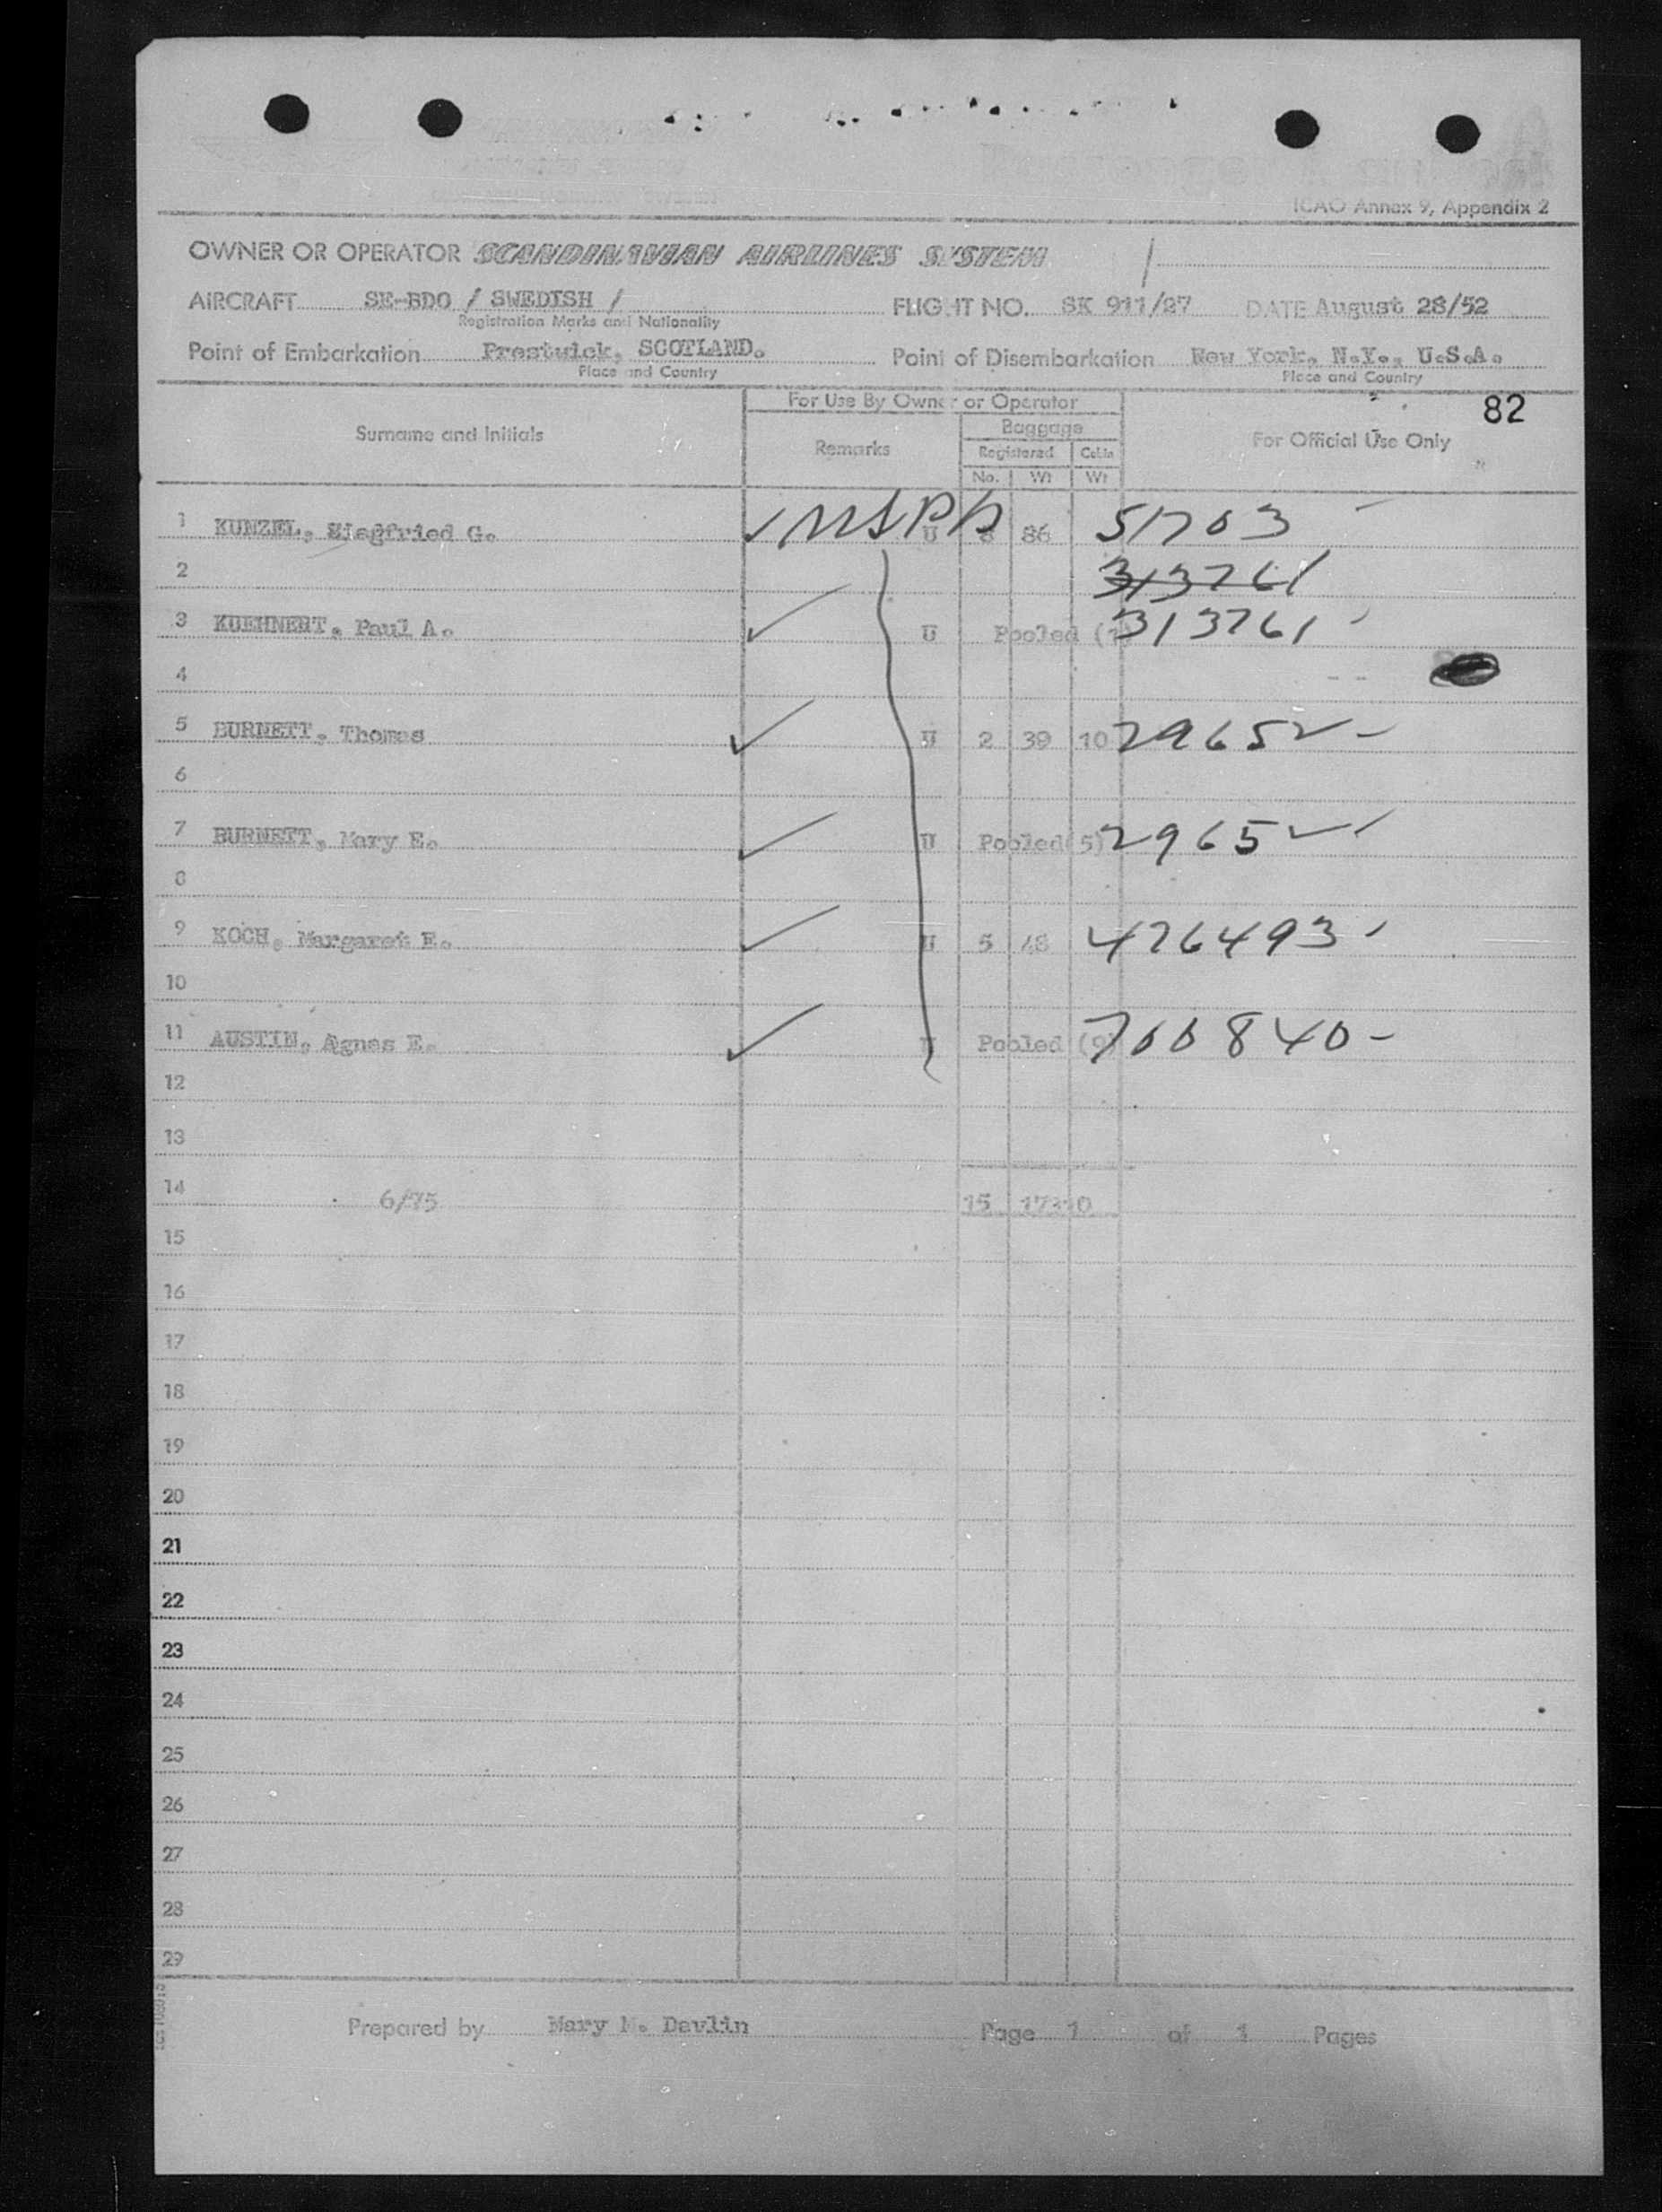 Passenger Manifest
ICAO Annex 9, Appendix 2
OWNER OR OPERATOR SCANDINAVIAN AIRLINES SYSTEM
AIRCRAFT SE-BDO / SWEDISH / FLIGHT NO. SK 911/27 DATE August 28/52
Registration Marks and Nationality
Point of Embarkation Prestwick, SCOTLAND. Point of Disembarkation New York, N.Y., U.S.A.
Place and Country Place and Country
82
For Use By Owner or Operator
Surname and Initials Remarks Baggage For Official Use Only
Registered Cabin
No. Wt Wt
1 KUNZEL, Siegfried G. U 8 86 51703
2 313761
3 KUEHNERT, Paul A. U Pooled (1) 313761
4
5 BURNETT, Thomas U 2 39 10 29652
6
7 BURNETT, Mary E. U Pooled(5) 29652
8
9 KOCH, Margaret E. U 5 48 426493
10
11 AUSTIN, Agnes E. U Pooled (9) 700840
12
13
14 6/75 15 173 10
15
16
17
18
19
20
21
22
23
24
25
26
27
28
29
Prepared by Mary M. Devlin Page 1 of 1 Pages